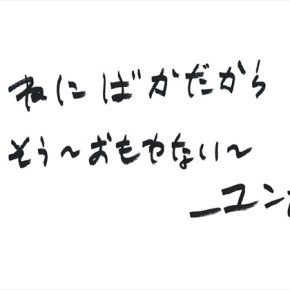 ねにばかだから
そう〜おもやない〜
—ユン